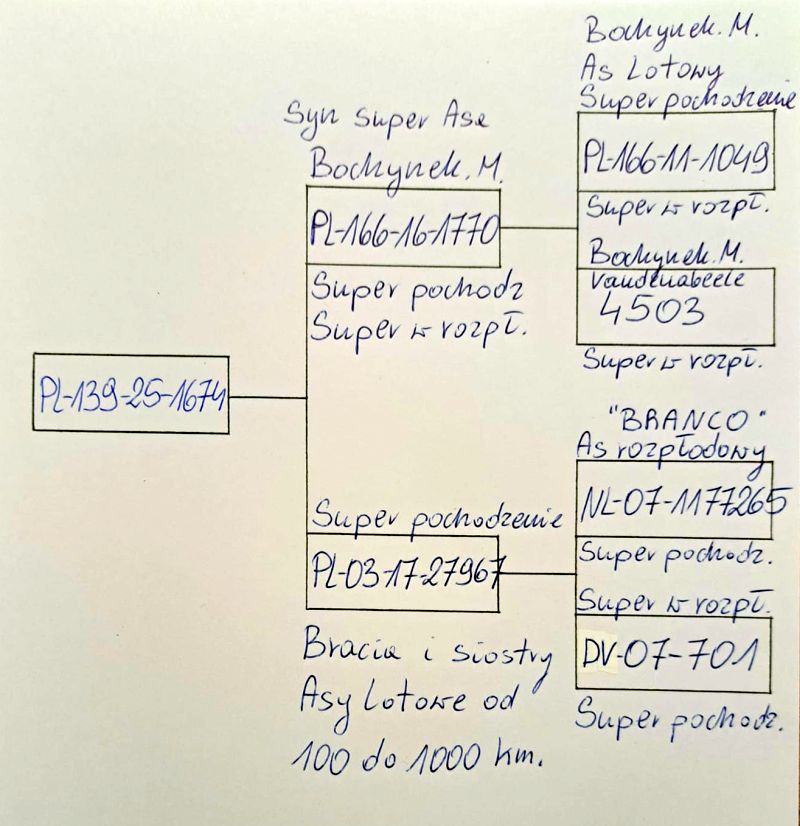 PL-139-25-1674
Syn super Asa
Bochynek. M.
PL-166-16-1770
Super pochodz
Super w rozpł.
Super pochodzenie
PL-03-17-27967
Bracia i siostry
Asy Lotowe od
100 do 1000 km.
Bochynek. M.
As Lotowy
Super pochodzenie
PL-166-11-1049
Super w rozpł.
Bochynek. M.
Vandenabeele
4503
Super w rozpł.
"BRANCO"
As rozpłodowy
NL-07-1177265
Super pochodz.
Super w rozpł.
DV-07-701
Super pochodz.